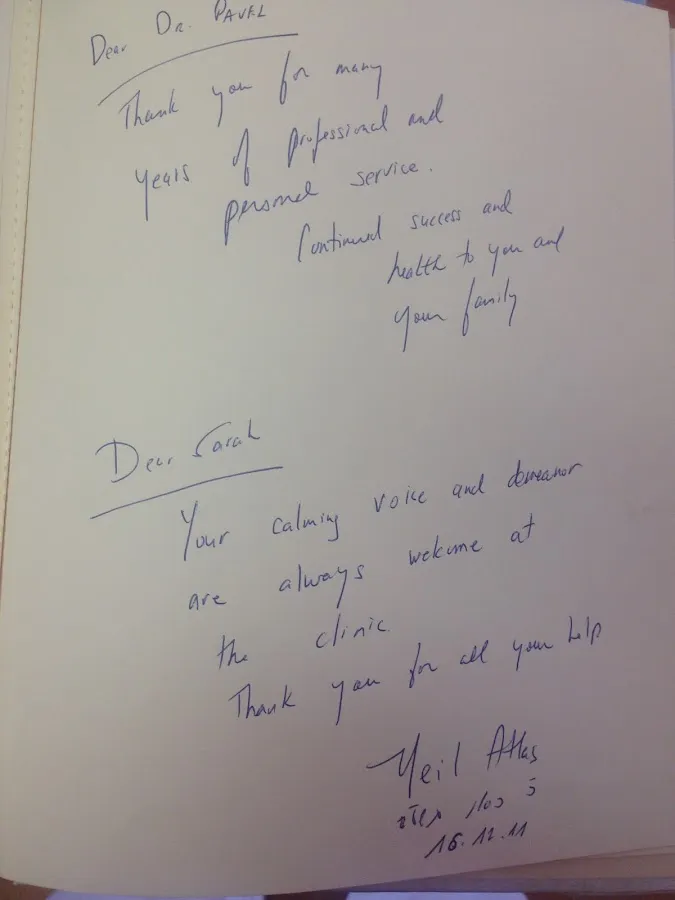 Dear Dr. PAVEL
Thank you for many
years of professional and
personal service.
Continued success and
health to you and
your family
Dear Sarah
Your calming voice and demeanor
are always welcome at
the clinic
Thank you for all your help
Neil Atlas
15.12.11